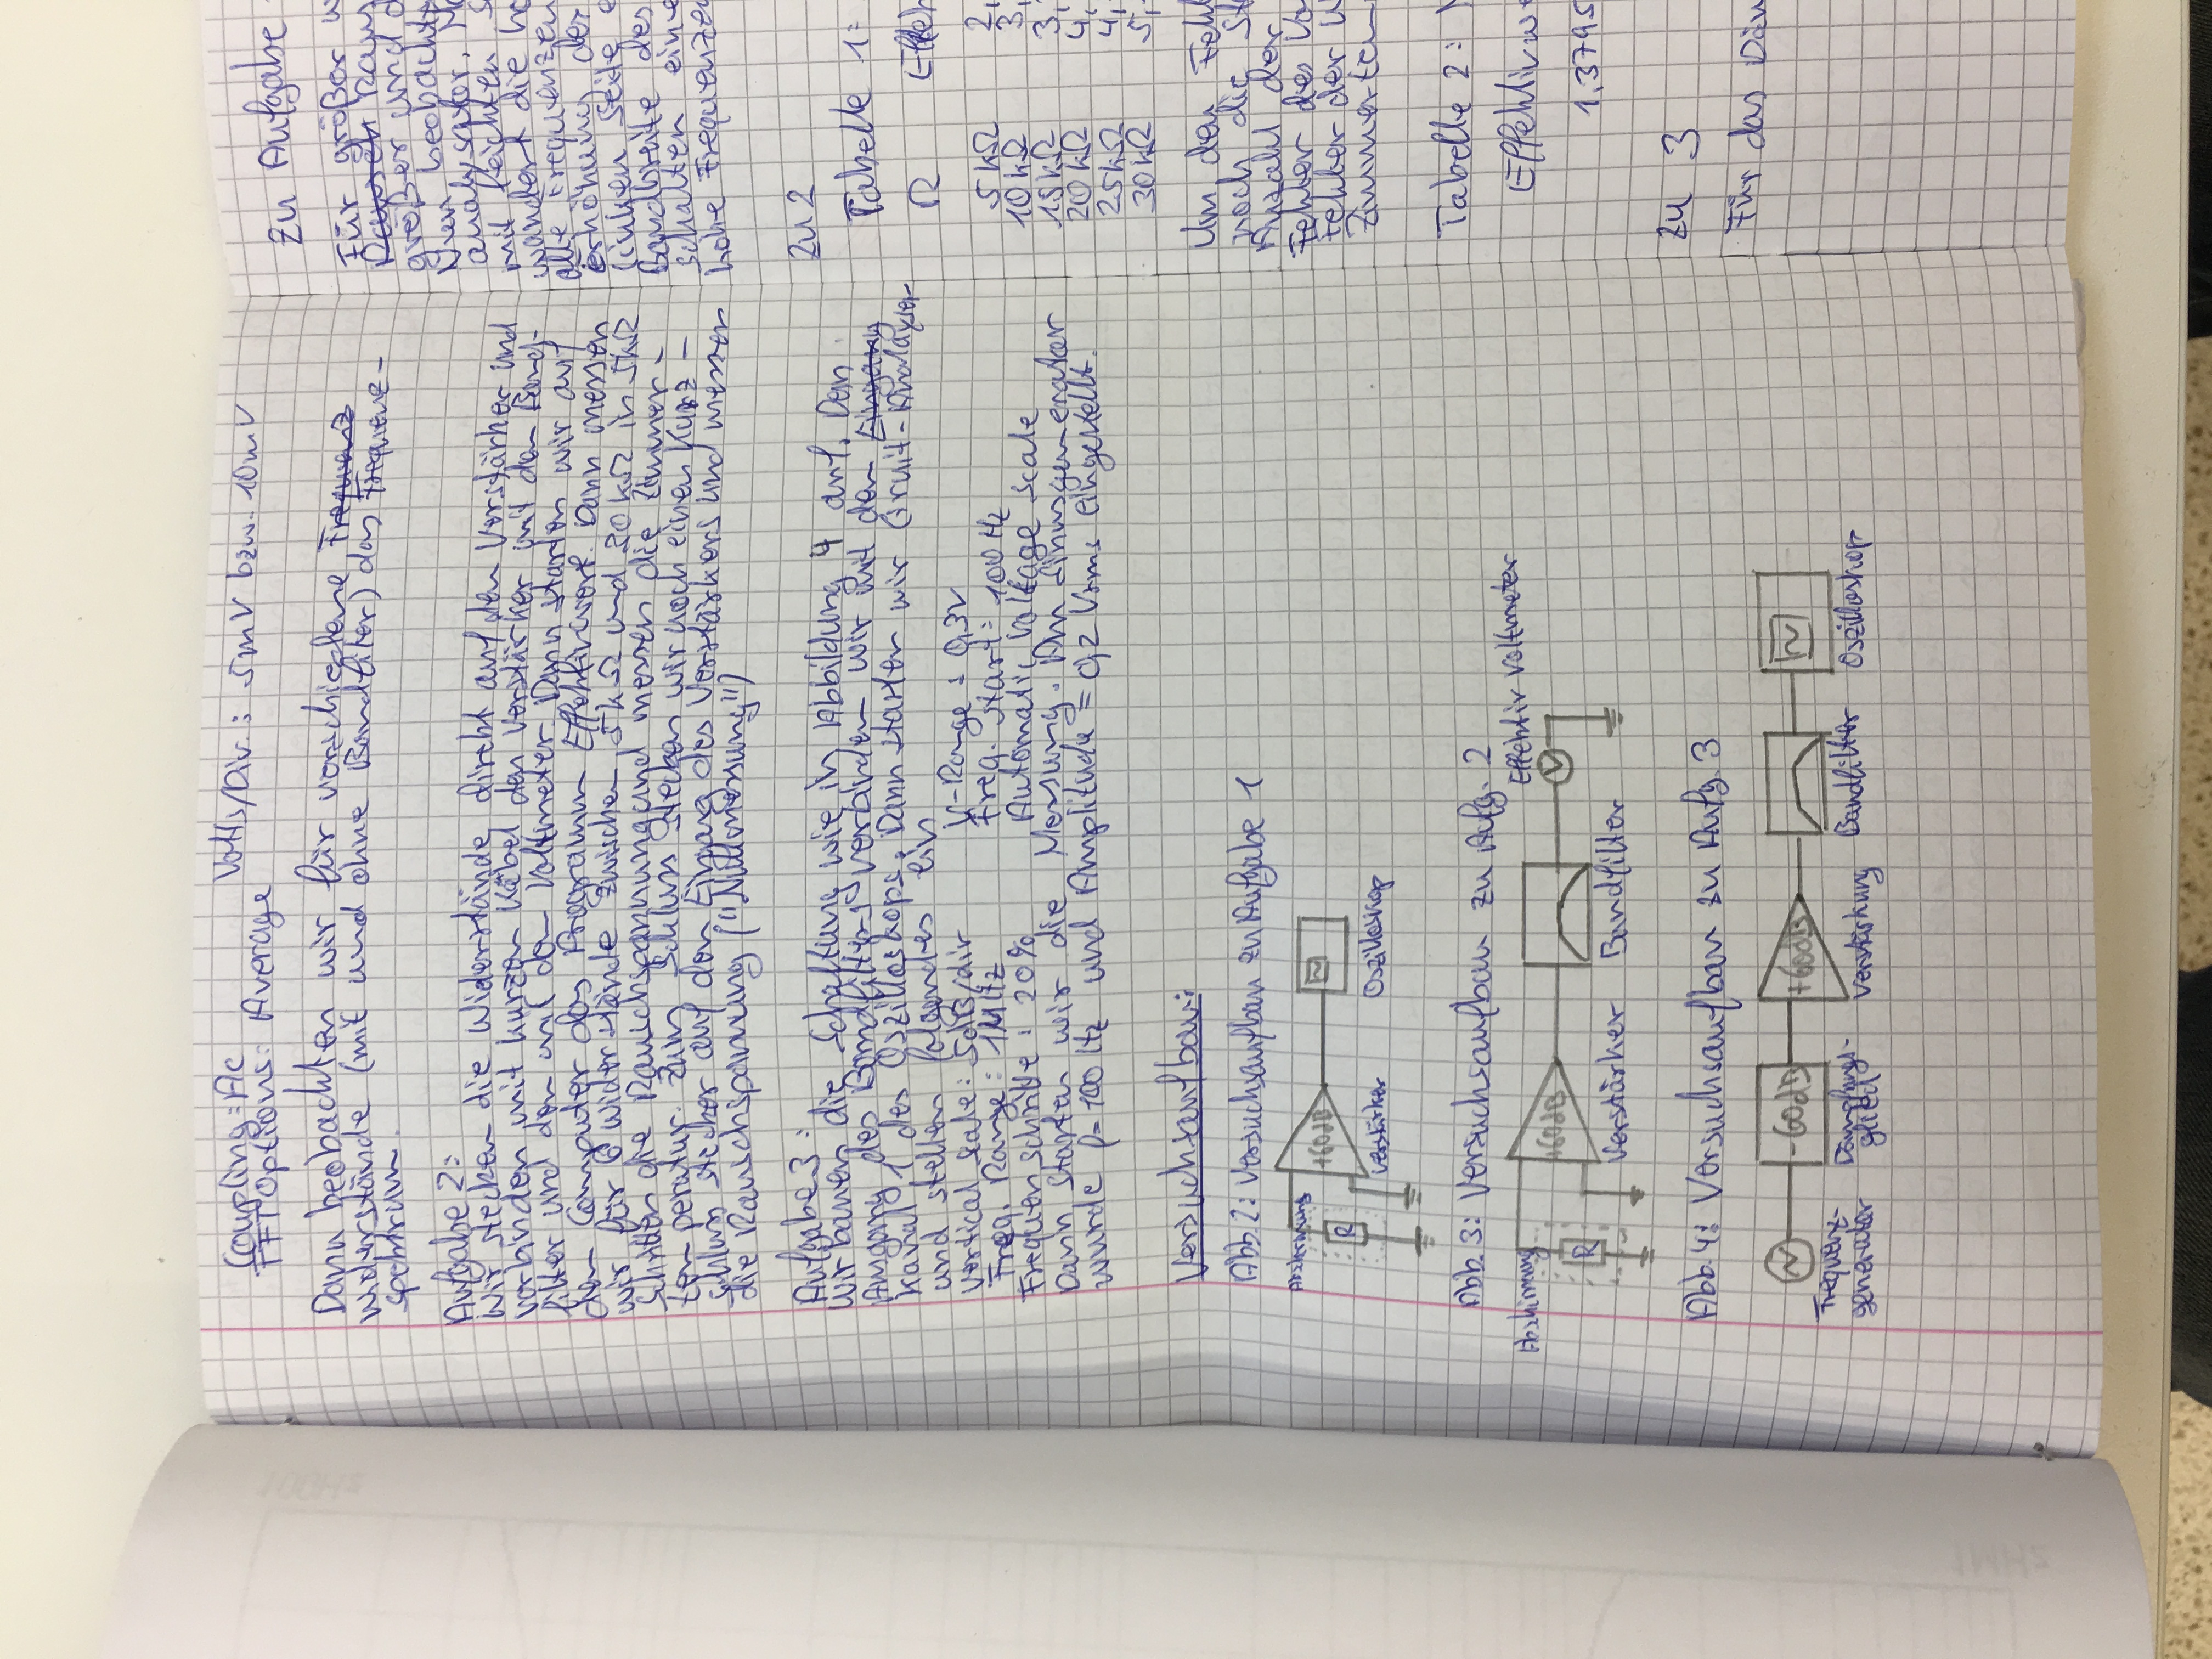 Coupling: Ac Volts/Div.: 5mV bzw. 10mV
FFT Options: Average
Dann beobachten wir für verschiedene Frequenz
widerstände (mit und ohne Bandfilter) das Frequenz-
spektrum.
Aufgabe 2:
Wir stecken die Widerstände direkt auf den Verstärker und
verbinden mit kurzen Kabel den Verstärker mit dem Band-
filter und den mit dem Voltmeter. Dann starten wir auf
dem Computer das Programm Effektivwert. Dann messen
wir für 6 Widerstände zwischen 5kΩ und 30kΩ in 5kΩ
Schritten die Rauschspannung und messen die Zimmer-
temperatur. Zum Schluss stecken wir noch einen Kurz-
schluss stecker auf den Eingang des Verstärkers und messen
die Rauschspannung ("Nullmessung")
Aufgabe 3:
Wir bauen die Schaltung wie in Abbildung 4 auf. Den
Ausgang des Bandfilters verbinden wir mit dem Eingang
Kanal 1 des Oszilloskops. Dann starten wir
und stellen folgendes ein
Vertical scale: 5dB/div V-Range: 0,3V
Freq. Range: 1MHz Freq. start: 100Hz
Frequenschritte: 20% Automatic voltage scale
Dann starten wir die Messung. Am Sinusgenerator
wurde f=100Hz und Amplitude = 0,2 Vrms eingestellt.
Versuchsaufbau:
Abb. 2: Versuchsaufbau zu Aufgabe 1
Abschirmung
R
+60dB
Verstärker
Oszilloskop
Abb. 3: Versuchsaufbau zu Aufg. 2
Effektiv Voltmeter
Abschirmung
R
+60dB
V
Verstärker Bandfilter
Abb. 4: Versuchsaufbau zu Aufg. 3
-60dB
+60dB
Frequenz-
generator
Dämpfungs-
glied
Verstärkung
Bandfilter
Oszilloskop
Zu Aufgabe
Für größer
größer und
Nun
analysator.
mit leichten
wandert die
alle Frequenzen
Erhöhung der
linken Seite
Bandbreite des
schalten
hohe Frequenzen
Zu 2
Tabelle 1:
Ω
5kΩ 2,
10kΩ 3,
15kΩ 3,
20kΩ 4,
25kΩ 4,
30kΩ 5,
Um den
noch die
Anzahl der
Fehler des
Fehler der
Tabelle 2:
1,3795
zu 3
Für das